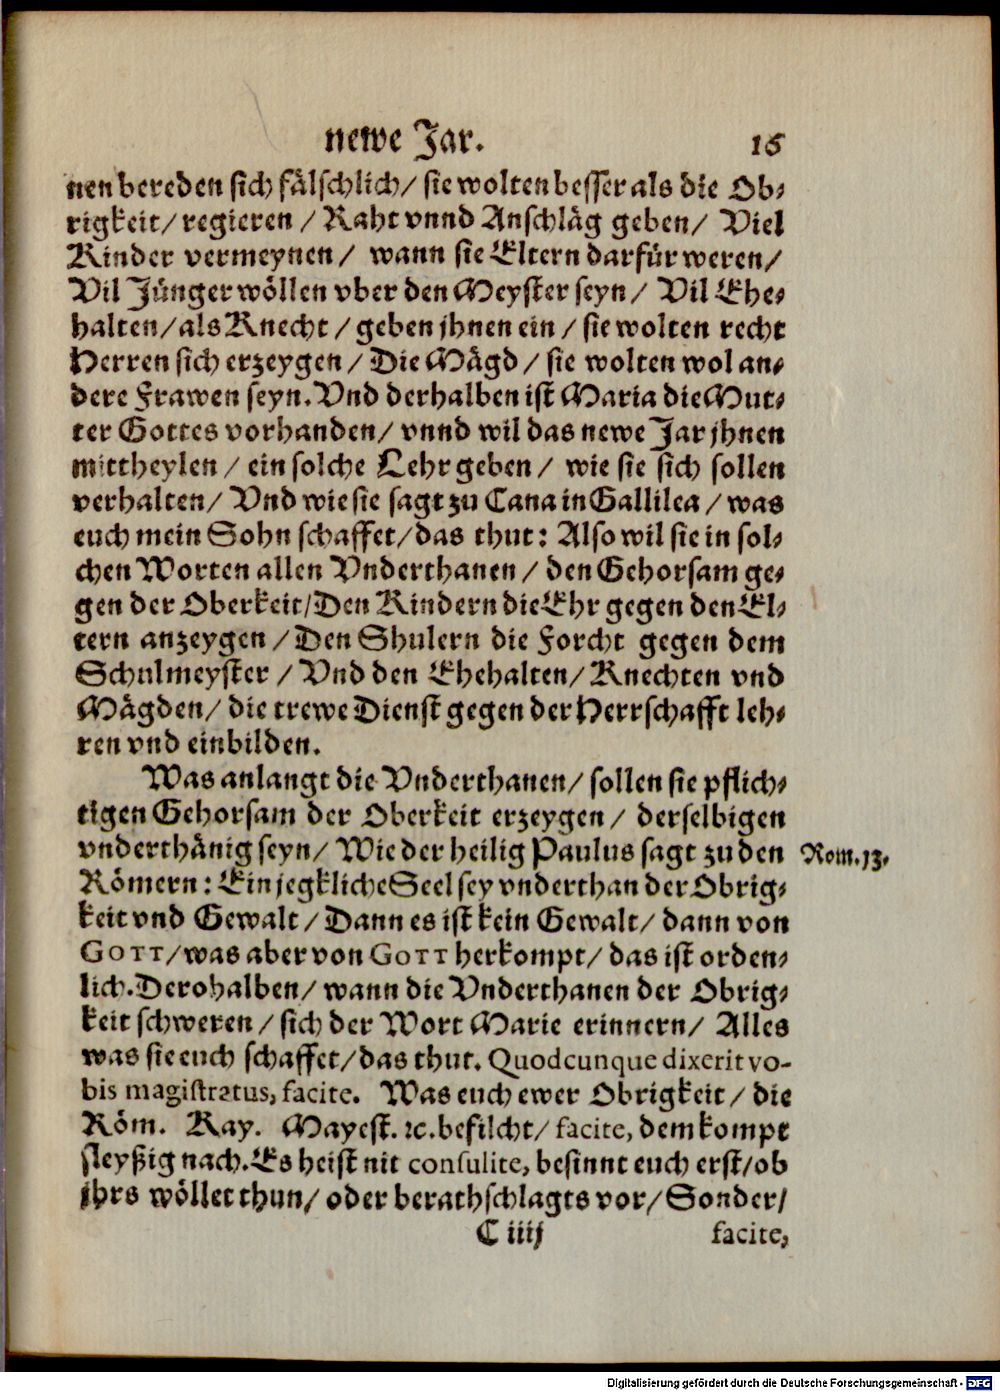 newe Jar. 15
nen bereden sich fälschlich/ sie wolten besser als die Ob⸗
rigkeit/ regieren / Raht vnnd Anschläg geben/ Viel
Kinder vermeynen/ wann sie Eltern darfür weren/
Vil Jünger wöllen vber den Meyster seyn/ Vil Ehe⸗
halten/als Knecht / geben jhnen ein / sie wolten recht
Herren sich erzeygen / Die Mägd / sie wolten wol an⸗
dere Frawen seyn. Vnd derhalben ist Maria die Mut⸗
ter Gottes vorhanden/ vnnd wil das newe Jar jhnen
mittheylen / ein solche Lehr geben / wie sie sich sollen
verhalten/ Vnd wie sie sagt zu Cana in Gallilea / was
euch mein Sohn schaffet/das thut: Also wil sie in sol⸗
chen Worten allen Vnderthanen / den Gehorsam ge⸗
gen der Oberkeit/Den Kindern die Ehr gegen den El⸗
tern anzeygen / Den Shulern die Forcht gegen dem
Schulmeyster / Vnd den Ehehalten/ Knechten vnd
Mägden/ die trewe Dienst gegen der Herrschafft leh⸗
ren vnd einbilden.
Was anlangt die Vnderthanen/ sollen sie pflich⸗
tigen Gehorsam der Oberkeit erzeygen / derselbigen
vnderthänig seyn/ Wie der heilig Paulus sagt zu den
Rom. 13.
Römern: Ein jegkliche Seel sey vnderthan der Obrig⸗
keit vnd Gewalt / Dann es ist kein Gewalt/ dann von
GOTT/was aber von GOTT herkompt/ das ist orden⸗
lich. Derohalben/ wann die Vnderthanen der Obrig⸗
keit schweren / sich der Wort Marie erinnern/ Alles
was sie euch schaffet/das thut. Quodcunque dixerit vo-
bis magistratus, facite. Was euch ewer Obrigkeit / die
Röm. Kay. Mayest. ꝛc. befilcht/ facite, dem kompt
fleyßig nach. Es heist nit consulite, besinnt euch erst/ob
jhrs wöllet thun/ oder berathschlagts vor/ Sonder/
C iiij facite,
Digitalisierung gefördert durch die Deutsche Forschungsgemeinschaft - DFG